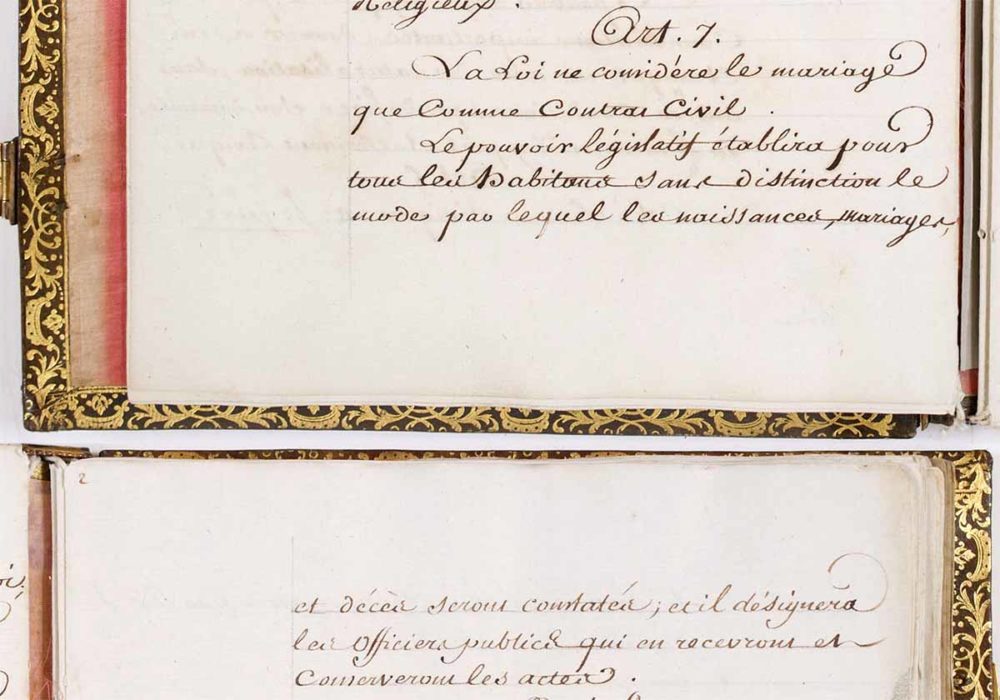 Religieux.
Art. 7.
La Loi ne considére le mariage
que Comme Contrat Civil.
Le pouvoir législatif établira pour
tous les habitans sans distinction le
mode par lequel les naissances, mariages,
2
et décès seront constatés; et il désignera
les Officiers publics qui en recevront et
Conserveront les actes.